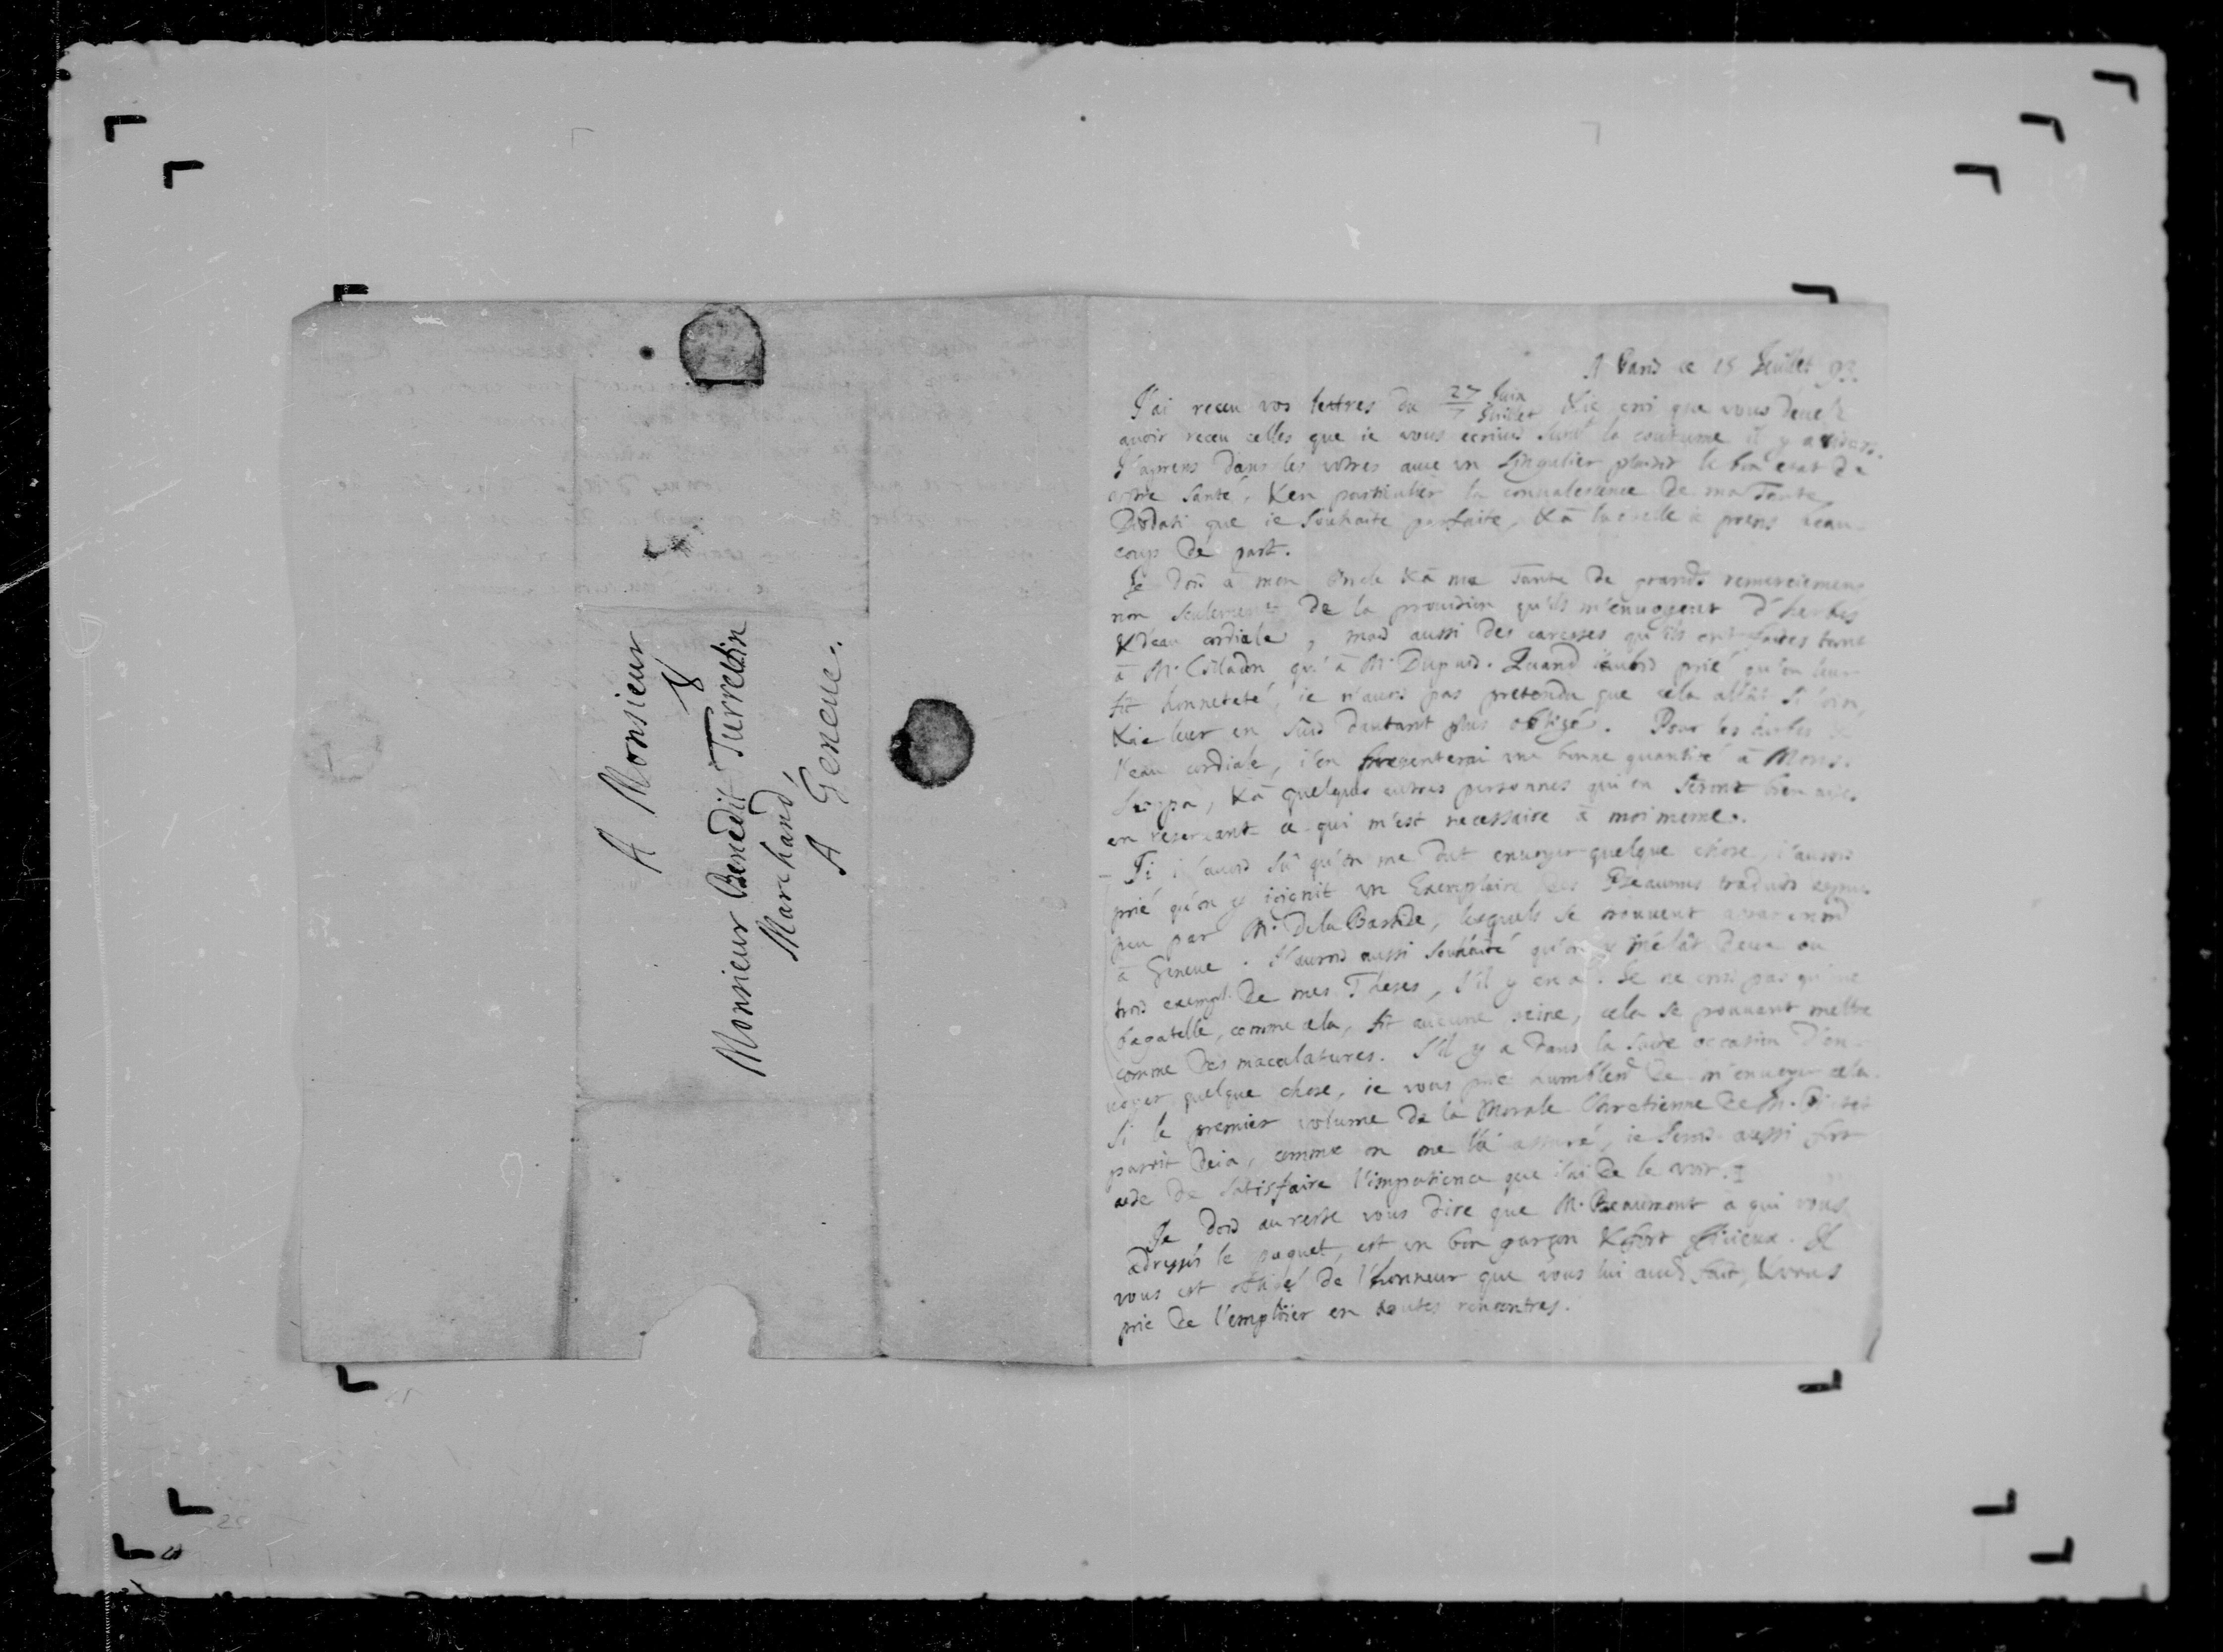 A Monsieur
Monsieur Benedit Turrettin
Marchand,
A Geneue.
A Paris ce 15 Juillet 93.
J'ai receu vos lettres du 27 Juin / 7 Juillet & ie croi que vous deuez
auoir receu celles que ie vous écriuis suiut la coutume il y a
J'aprens dans les vôtres auec un singulier plaisir le bon etat de
votre santé, & en particulier la conualescence de ma Tante
Diodati que ie souhaite parfaite, & à laquelle ie prens beau-
coup de part.
Je dois à mon Oncle & à ma Tante de grands remerciemens
non seulement de la prouision qu'ils m'enuoyent d'herbes
& d'eau cordiale, mais aussi des caresses qu'ils ont faites tant
à Mr. Colladon qu'à Mr. Dupuis. Quand i'aurois prié qu'on leur
fit honneteté, ie n'aurois pas pretendu que cela allât si loin,
& ie leur en suis dautant plus obligé. Pour les herbes &
l'eau cordiale, i'en presenterai une bonne quantité à Mons.
& à quelques autres personnes qui en seront bien aises
en reseruant ce qui m'est necessaire à moi meme.
Si i'auois sû qu'on me dût enuoyer quelque chose, i'aurois
prié qu'on y ioignit un Exemplaire des Pseaumes traduits depuis
peu par Mr. De la Bastide, lesquels se trouuent
à Geneue. J'aurois aussi souhaité qu'on y mêlât deux ou
trois exempl. de mes Theses, s'il y en a. Je ne crois pas qu'une
bagatelle, comme cela, fit aucune peine, cela se pouuant mettre
comme des maculatures. S'il y a dans la suite occasion d'en-
uoyer quelque chose, ie vous prie humblemt de m'enuoyer cela.
Si le premier volume de la Morale Chretienne de Mr. Pictet
paroit deia, comme on me l'a assuré, ie serois aussi fort
aise de satisfaire l'impatience que i'ai de le voir.
Je dois au reste vous dire que Mr. Beaumont à qui vous
adressés le paquet, est un bon garçon & fort officieux. Il
vous est obligé de l'honneur que vous lui aués fait, & vous
prie de l'emploier en toutes rencontres.